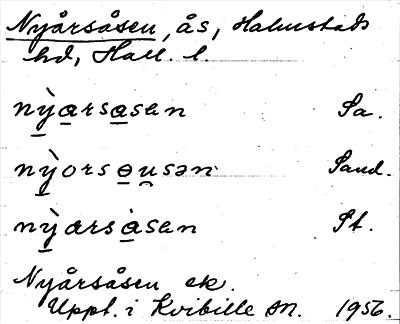 Nyårsåsen, ås, Halmstads
hd, Hall. l.
nỳa̲rsa̲sen Sa.
nỳorse̲u̲sən Sand.
nỳarsa̲sen St.
Nyårsåsen ek.
Uppt. i Kvibille sn. 1956.